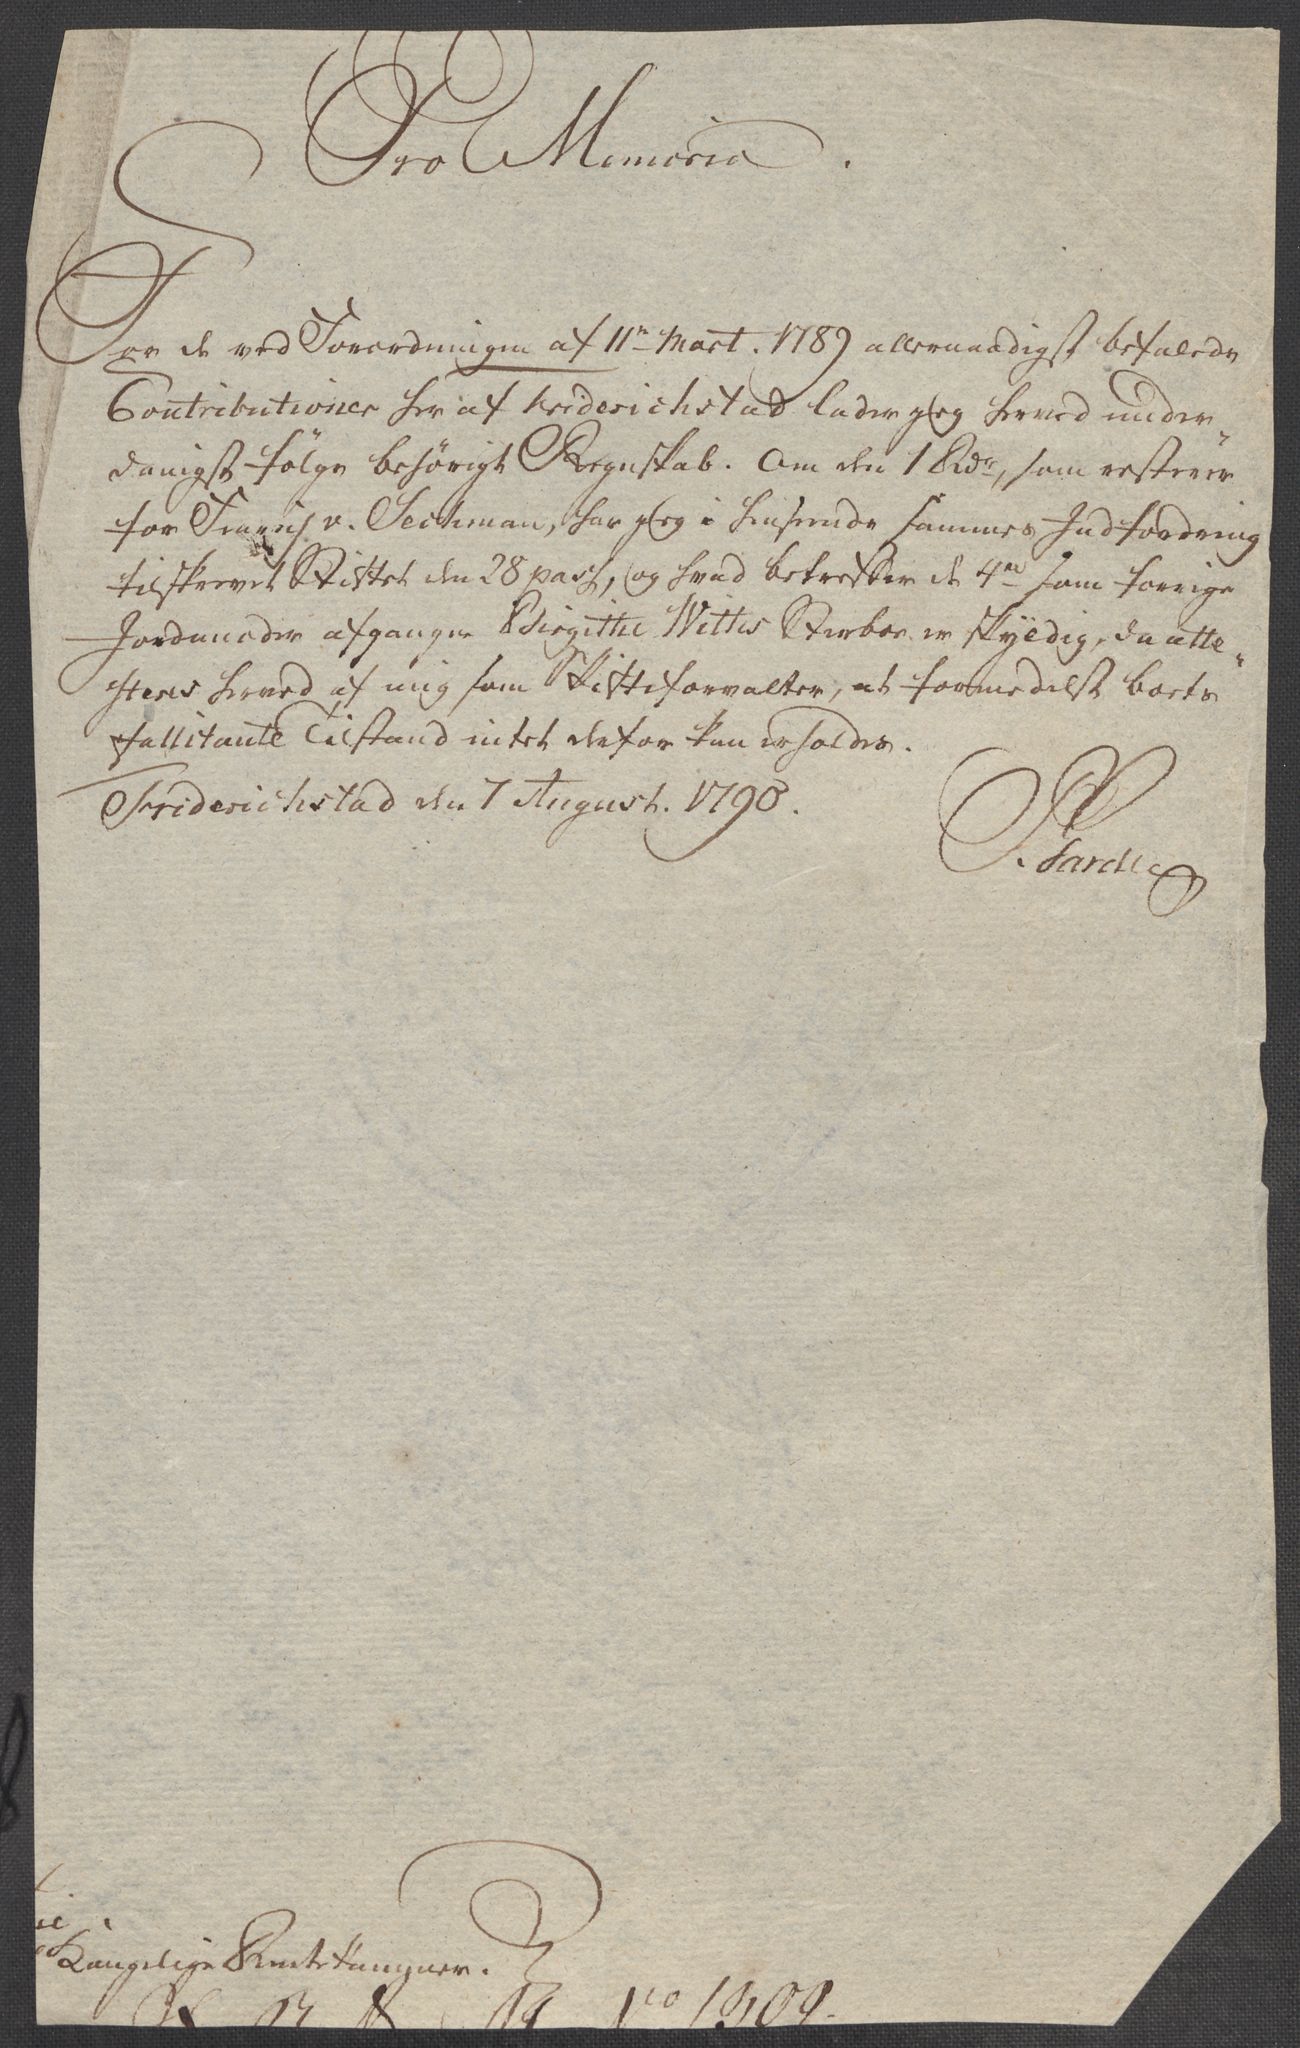 Pro Memoria.
For de ved Forordningen af 11te Mart. 1789 allernaadigst befalede
Contributioner her af Friderichstad lader jeg herved under„
danigst følge behørigt Regnskab. Om den 1 Rdr, som resterer
for v. Seckman, har jeg i henseende sammes Indfordring
tilskrevet Stiftet den 28 pass, og hvad betreffer de 4rd som forrige
Jordmoder afgangne Birgithe Witths Sterboe er skyldig, da atte„
steres herved af mig som Skifteforvalter, at formedelst boets
fallitante Tilstand intet derfor kan erholdes.
Friderichstad den 7 August. 1790.
Kongelige Rentekammer.
No 1909.